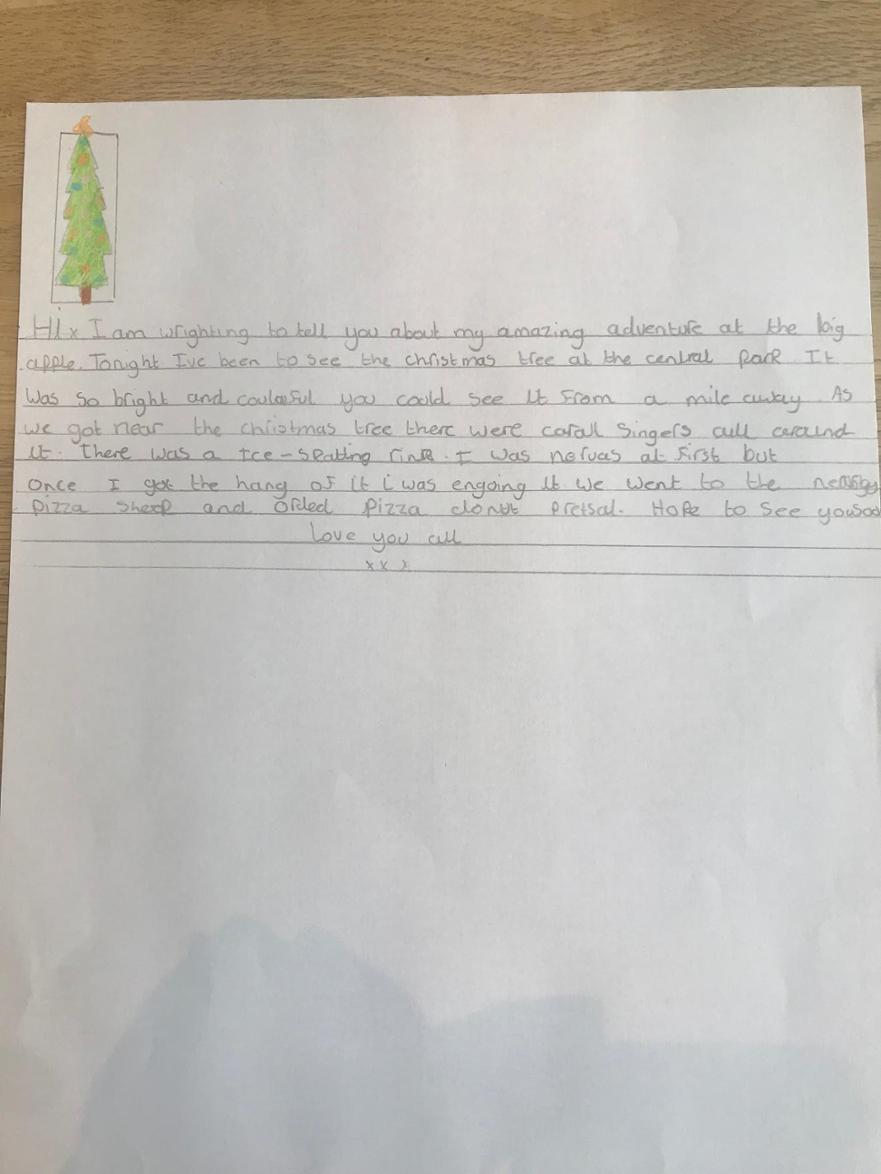 Hi x I am wrighting to tell you about my amazing adventure at the big
apple. Tonight Ive been to see the christmas tree at the central park It
was so bright and coulosful you could see it from a mile away. As
we got near the christmas tree there were carall singers all around
it. There was a ice-skating rink. I was nervas at first but
once I got the hang of it i was engoing it we went to the
pizza and orded pizza donut pretsal. Hope to see you
Love you all
x x x